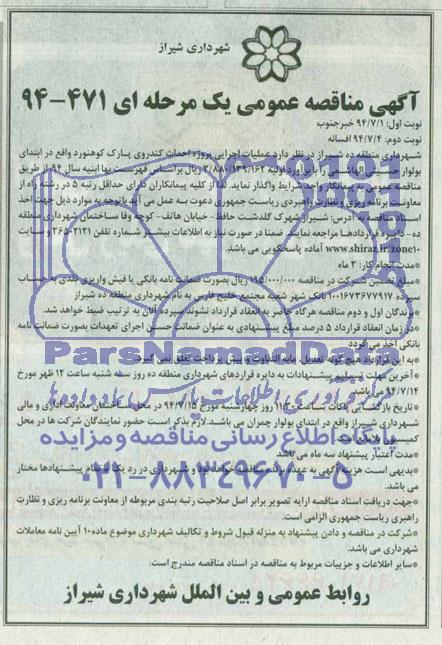 شهرداری شیراز
آگهی مناقصه عمومی یک مرحله ای ۴۷۱-۹۴
نوبت اول: ۹۴/۷/۱ خبرجنوب
نوبت دوم: ۹۴/۷/۴ افسانه
شهرداری منطقه ده شیراز در نظر دارد عملیات اجرایی پروژه احداث کندروی پارک کوهنورد واقع در ابتدای
بولوار ریال براساس فهرست بها ابنیه سال ۹۴ از طریق
مناقصه عمومی به پیمانکار واجد شرایط واگذار نماید. لذا از کلیه پیمانکاران دارای حداقل رتبه ۵ در رشته راه از
معاونت برنامه ریزی و نظارت راهبردی ریاست جمهوری دعوت به عمل می آید باتوجه به موارد ذیل جهت اخذ
اسناد مناقصه به آدرس: شیراز شهرک گلدشت حافظ - خیابان هاتف - کوچه وفا ساختمان شهرداری منطقه
ده - دایره قراردادها مراجعه نمایند. ضمنا در صورت نیاز به اطلاعات بیشتر شماره تلفن و سایت
www.shiraz.ir/zone10 آماده پاسخگویی می باشد.
*مدت انجام کار: ۳ ماه
*مبلغ تضمین شرکت در مناقصه ریال بصورت ضمانت نامه بانکی یا فیش واریزی نقدی به حساب
سپرده ۱۰۰۱۶۷۳۶۷۷۹۱۷ بانک شهر شعبه مجتمع خلیج فارس به نام شهرداری منطقه ده شیراز
*برندگان اول و دوم مناقصه هرگاه حاضر به انعقاد قرارداد نشوند سپرده آنان به ترتیب ضبط خواهد شد.
*در زمان انعقاد قرارداد ۵ درصد مبلغ پیشنهادی به عنوان ضمانت حسن اجرای تعهدات بصورت ضمانت نامه
بانکی اخذ می گردد
*به این قرارداد هیچ گونه تعدیل، مابه التفاوت و پیش پرداخت تعلق نمی گیرد.
*آخرین مهلت تسلیم پیشنهادات به دایره قراردادهای شهرداری منطقه ده روز سه شنبه ساعت ۱۲ ظهر مورخ
۹۴/۷/۱۴ می باشد
*تاریخ بازگشایی پاکات ساعت روز چهارشنبه مورخ ۹۴/۷/۱۵ در محل ساختمان معاونت اداری و مالی
شهرداری شیراز واقع در ابتدای بولوار چمران می باشد. لازم بذکر است حضور نمایندگان شرکت ها در محل
کمیسیون بلامانع است
*مدت اعتبار پیشنهاد سه ماه می باشد
*بدیهی است هزینه آگهی به عهده برنده مناقصه خواهد بود و شهرداری در رد یک یا تمام پیشنهادها مختار
می باشد.
*جهت دریافت اسناد مناقصه ارایه تصویر برابر اصل صلاحیت رتبه بندی مربوطه از معاونت برنامه ریزی و نظارت
راهبری ریاست جمهوری الزامی است.
*شرکت در مناقصه و دادن پیشنهاد به منزله قبول شروط و تکالیف شهرداری موضوع ماده ۱۰ آیین نامه معاملات
شهرداری می باشد.
*سایر اطلاعات و جزییات مربوط به مناقصه در اسناد مناقصه مندرج است.
روابط عمومی و بین الملل شهرداری شیراز
ParsNamadData
پایگاه اطلاع رسانی مناقصه و مزایده
۰۲۱-۸۸۳۴۹۶۷۰-۵